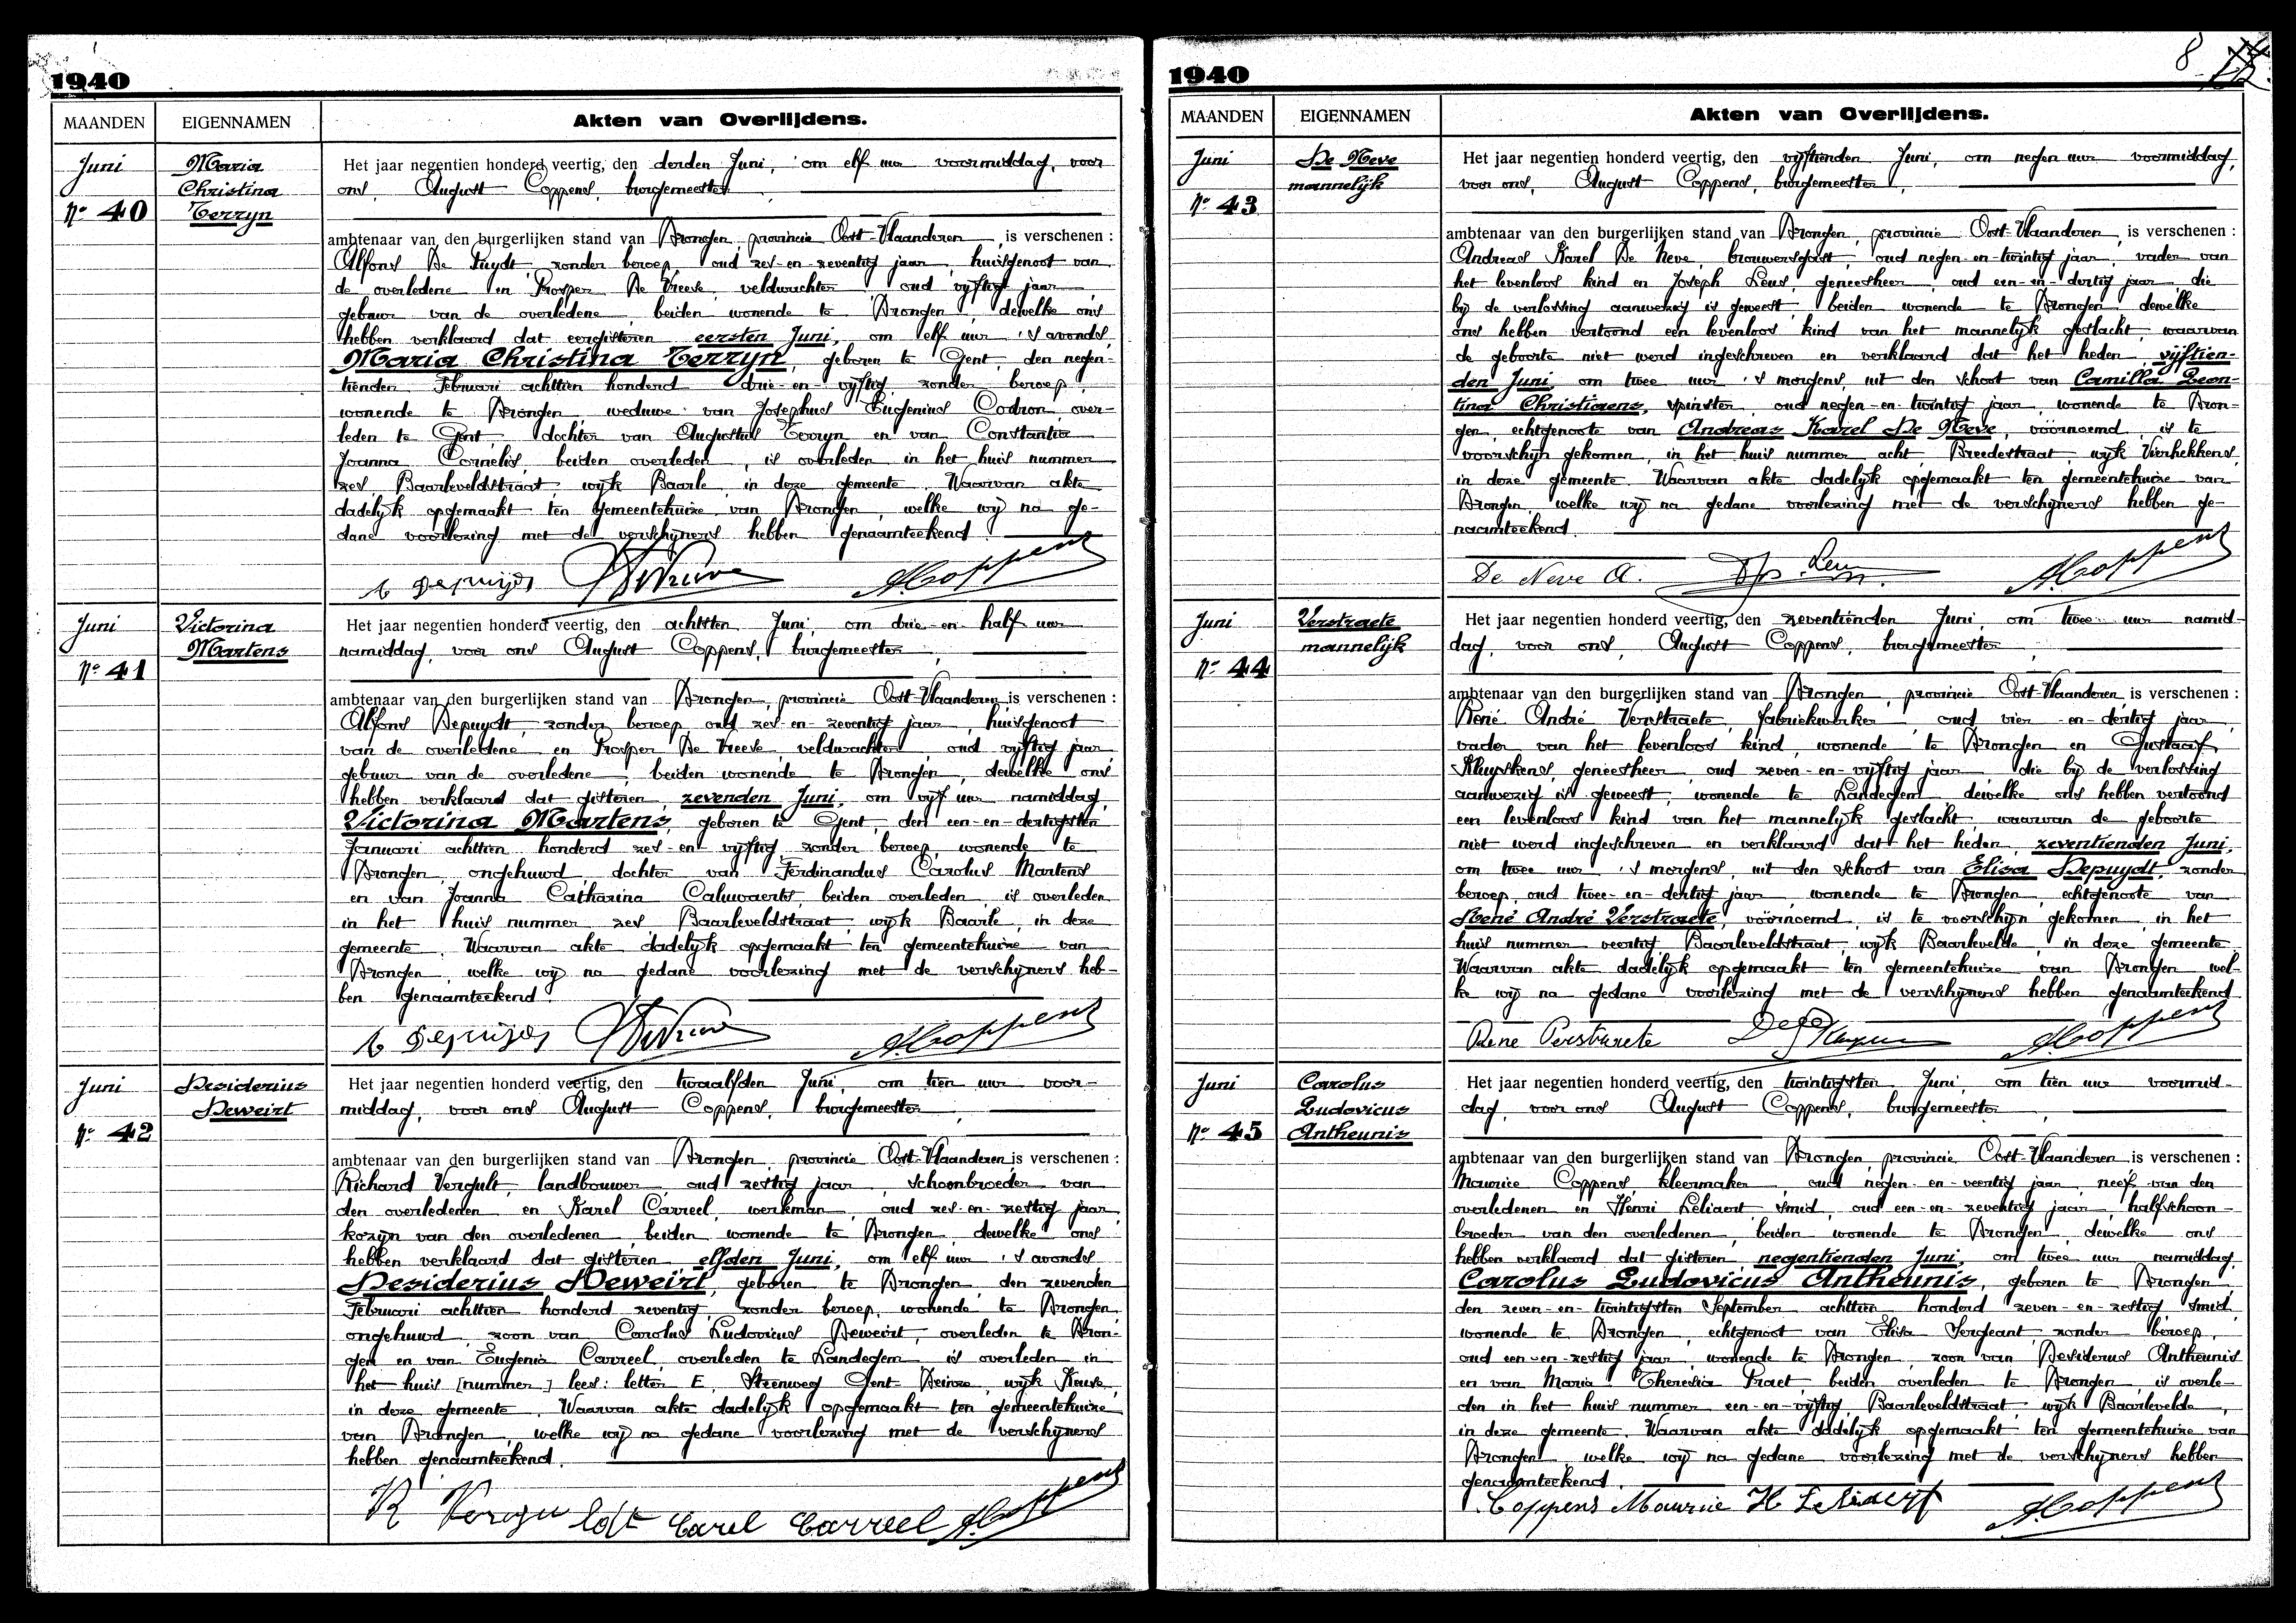 1940
MAANDEN
EIGENNAMEN
Akten van Overlijdens.
Juni
Nº 40
Maria
Christina
Terryn
Het jaar negentien honderd veertig, den derden Juni, om elf uur voormiddag, voor
ons, August Coppens, burgemeester
ambtenaar van den burgerlijken stand van Drongen, provincie Oost-Vlaanderen, is verschenen :
Alfons De Puydt, zonder beroep, oud zes-en-zeventig jaar, huisgenoot van
de overledene en Prosper De Vreese, veldwachter, oud vijftig jaar
gebuur van de overledene, beiden wonende te Drongen, dewelke ons
hebben verklaard dat eergisteren eersten Juni, om elf uur 's avonds,
Maria Christina Terryn, geboren te Gent, den negen-
tienden Februari achttien honderd drie-en-vijftig, zonder beroep,
wonende te Drongen, weduwe van Josephus Eugenius Codron, over-
leden te Gent, dochter van Augustus Terryn en van Constantia
Joanna Cornelis, beiden overleden, is overleden in het huis nummer
zes Baarleveldstraat, wijk Baarle, in deze gemeente. Waarvan akte
dadelijk opgemaakt ten gemeentehuize van Drongen, welke wij na ge-
dane voorlezing met de verschijners hebben genaamteekend.
A Depuijdt
ACoppens
Juni
Nº 41
Victorina
Martens
Het jaar negentien honderd veertig, den achtsten Juni, om drie-en-half uur
namiddag, voor ons August Coppens, burgemeester,
ambtenaar van den burgerlijken stand van Drongen, provincie Oost-Vlaanderen, is verschenen :
Alfons Depuydt, zonder beroep, oud zes-en-zeventig jaar, huisgenoot
van de overledene en Prosper De Vreese, veldwachter, oud vijftig jaar,
gebuur van de overledene, beiden wonende te Drongen, dewelke ons
hebben verklaard dat gisteren, zevenden Juni, om vijf uur namiddag,
Victorina Martens, geboren te Gent, den een-en-dertigsten
Januari achttien honderd zes-en-vijftig, zonder beroep, wonende te
Drongen, ongehuwd, dochter van Ferdinandus Carolus Martens
en van Joanna Catharina Caluwaerts, beiden overleden, is overleden
in het huis nummer zes Baarleveldstraat, wijk Baarle, in deze
gemeente. Waarvan akte dadelijk opgemaakt ten gemeentehuize van
Drongen, welke wij na gedane voorlezing met de verschijners heb-
ben genaamteekend.
A Depuijdt
ACoppens
Juni
Nº 42
Desiderius
Deweirt
Het jaar negentien honderd veertig, den twaalfden Juni, om tien uur voor-
middag, voor ons August Coppens, burgemeester,
ambtenaar van den burgerlijken stand van Drongen, provincie Oost-Vlaanderen, is verschenen :
Richard Vergult, landbouwer, oud zestig jaar, schoonbroeder van
den overledenen en Karel Carreel, werkman, oud zes-en-zestig jaar,
kozijn van den overledenen, beiden wonende te Drongen, dewelke ons
hebben verklaard dat gisteren elfden Juni, om elf uur 's avonds
Desiderius Deweirt, geboren te Drongen, den zevenden
Februari achttien honderd zeventig, zonder beroep, wonende te Drongen,
ongehuwd, zoon van Carolus Ludovicus Deweirt, overleden te Dron-
gen en van Eugenia Carreel, overleden te Landegem is overleden in
het huis [nummer] lees: letter E, Steenweg Gent Deinze, wijk Keuze,
in deze gemeente. Waarvan akte dadelijk opgemaakt ten gemeentehuize
van Drongen, welke wij na gedane voorlezing met de verschijners
hebben genaamteekend.
Carel Carreel ACoppens
8
1940
MAANDEN
EIGENNAMEN
Akten van Overlijdens.
Juni
Nº 43
De Neve
mannelijk
Het jaar negentien honderd veertig, den vijftienden Juni, om negen uur voormiddag,
voor ons, August Coppens, burgemeester,
ambtenaar van den burgerlijken stand van Drongen, provincie Oost-Vlaanderen, is verschenen :
Andreas Karel De Neve, brouwersgast, oud negen-en-twintig jaar, vader van
het levenloos kind en Joseph Leus, geneesheer, oud een-en-dertig jaar, die
bij de verlossing aanwezig is geweest, beiden wonende te Drongen, dewelke
ons hebben vertoond een levenloos kind van het mannelijk geslacht, waarvan
de geboorte niet werd ingeschreven en verklaard dat het heden, vijftien-
den Juni, om twee uur 's morgens, uit den schoot van Camilla Leon-
tina Christiaens, spinster, oud negen-en-twintig jaar, wonende te Dron-
gen, echtgenoote van Andreas Karel De Neve, vóórnoemd, is te
voorschijn gekomen, in het huis nummer acht, Breedestraat, wijk Vierhekkens,
in deze gemeente. Waarvan akte dadelijk opgemaakt ten gemeentehuize van
Drongen, welke wij na gedane voorlezing met de verschijners hebben ge-
naamteekend.
De Neve A.
ACoppens
Juni
Nº 44
Verstraete
mannelijk
Het jaar negentien honderd veertig, den zeventienden Juni, om twee uur namid-
dag, voor ons, August Coppens, burgemeester,
ambtenaar van den burgerlijken stand van Drongen, provincie Oost-Vlaanderen, is verschenen :
René André Verstraete, fabriekwerker, oud vier-en-dertig jaar,
vader van het levenloos kind, wonende te Drongen en Gustaaf
Kluyskens, geneesheer, oud zeven-en-vijftig jaar, die bij de verlossing
aanwezig is geweest, wonende te Landegem, dewelke ons hebben vertoond
een levenloos kind van het mannelijk geslacht, waarvan de geboorte
niet werd ingeschreven en verklaard dat het heden, zeventienden Juni,
om twee uur 's morgens, uit den schoot van Elisa Depuydt, zonder
beroep, oud twee-en-dertig jaar, wonende te Drongen, echtgenoote van
René André Verstraete, vóórnoemd, is te voorschijn gekomen in het
huis nummer veertig, Baarleveldstraat, wijk Baarlevelde, in deze gemeente.
Waarvan akte dadelijk opgemaakt ten gemeentehuize van Drongen wel-
ke wij na gedane voorlezing met de verschijners hebben genaamteekend
Rene Verstraete
ACoppens
Juni
Nº 45
Carolus
Ludovicus
Antheunis
Het jaar negentien honderd veertig, den twintigsten Juni, om tien uur voormid-
dag, voor ons August Coppens, burgemeester,
ambtenaar van den burgerlijken stand van Drongen, provincie Oost-Vlaanderen, is verschenen :
Maurice Coppens, kleermaker, oud negen-en-veertig jaar, neef van den
overledenen en Henri Leliaert, smid, oud een-en-zeventig jaar, halfschoon-
broeder van den overledenen, beiden wonende te Drongen, dewelke ons
hebben verklaard dat gisteren, negentienden Juni, om twee uur namiddag,
Carolus Ludovicus Antheunis, geboren te Drongen
den zeven-en-twintigsten September achttien honderd zeven-en-zestig, smid,
wonende te Drongen, echtgenoot van Elisa Sergeant, zonder beroep,
oud een-en-zestig jaar, wonende te Drongen, zoon van Desiderius Antheunis
en van Maria Theresia Praet, beiden overleden te Drongen, is overle-
den in het huis nummer een-en-vijftig, Baarleveldstraat, wijk Baarlevelde,
in deze gemeente. Waarvan akte dadelijk opgemaakt ten gemeentehuize van
Drongen welke wij na gedane voorlezing met de verschijners hebben
genaamteekend.
Coppens Maurice H Leliaert
ACoppens